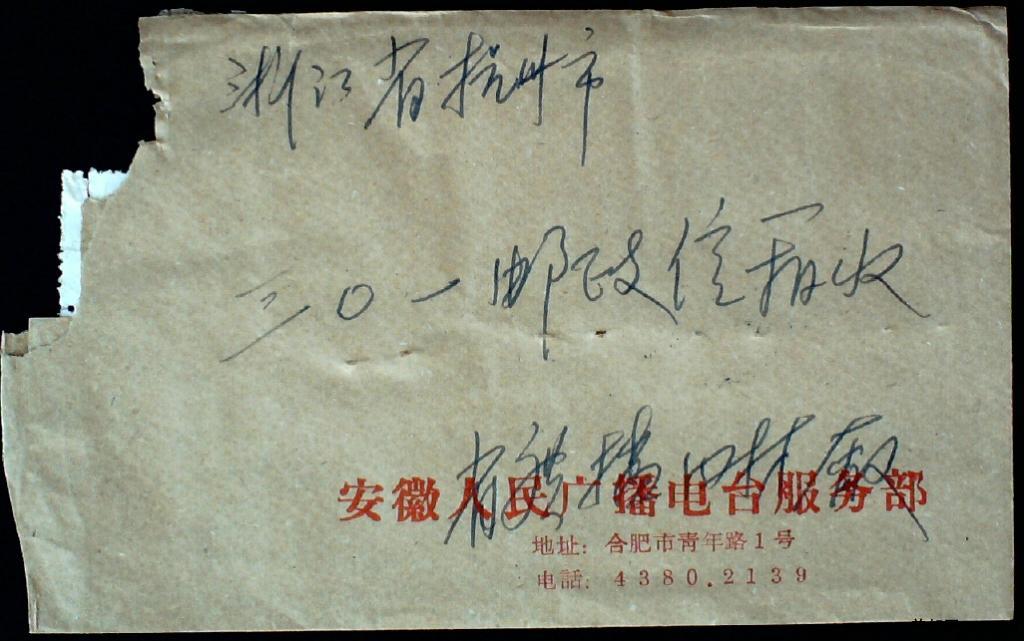 浙江省杭州市
三〇一邮政信箱收
安徽人民广播电台服务部
地址: 合肥市青年路1号
电話: 4380.2139